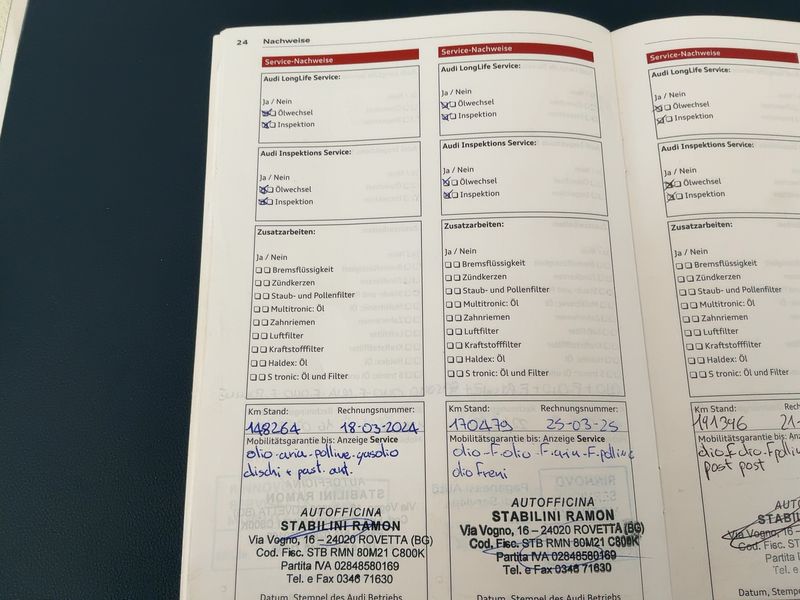 24 Nachweise
Service-Nachweise
Audi LongLife Service:
Ja / Nein
Ölwechsel
Inspektion
Audi Inspektions Service:
Ja / Nein
Ölwechsel
Inspektion
Zusatzarbeiten:
Ja / Nein
Bremsflüssigkeit
Zündkerzen
Staub- und Pollenfilter
Multitronic: Öl
Zahnriemen
Luftfilter
Kraftstofffilter
Haldex: Öl
S tronic: Öl und Filter
Km Stand: Rechnungsnummer:
148264 18-03-2024
Mobilitätsgarantie bis: Anzeige Service
olio-aria-polline-gasolio
dischi + past. ant.
AUTOFFICINA
STABILINI RAMON
Via Vogno, 16 – 24020 ROVETTA (BG)
Cod. Fisc. STB RMN 80M21 C800K
Partita IVA 02848580169
Tel. e Fax 0346 71630
Datum, Stempel des Audi Betriebs
Service-Nachweise
Audi LongLife Service:
Ja / Nein
Ölwechsel
Inspektion
Audi Inspektions Service:
Ja / Nein
Ölwechsel
Inspektion
Zusatzarbeiten:
Ja / Nein
Bremsflüssigkeit
Zündkerzen
Staub- und Pollenfilter
Multitronic: Öl
Zahnriemen
Luftfilter
Kraftstofffilter
Haldex: Öl
S tronic: Öl und Filter
Km Stand: Rechnungsnummer:
170479 25-03-25
Mobilitätsgarantie bis: Anzeige Service
olio-F.olio-F.aria-F.polline
olio freni
AUTOFFICINA
STABILINI RAMON
Via Vogno, 16 – 24020 ROVETTA (BG)
Cod. Fisc. STB RMN 80M21 C800K
Partita IVA 02848580169
Tel. e Fax 0346 71630
Datum, Stempel des Audi Betriebs
Service-Nachweise
Audi LongLife Service:
Ja / Nein
Ölwechsel
Inspektion
Audi Inspektions Service:
Ja / Nein
Ölwechsel
Inspektion
Zusatzarbeiten:
Ja / Nein
Bremsflüssigkeit
Zündkerzen
Staub- und Pollenfilter
Multitronic: Öl
Zahnriemen
Luftfilter
Kraftstofffilter
Haldex: Öl
S tronic: Öl und Filter
Km Stand: Rech
191396 21-
Mobilitätsgarantie bis: Anz
post post
AUTO
STABIL
Via Vogno, 16 –
Cod. Fisc. STB
Partita
Tel. e
Datum, Stempel